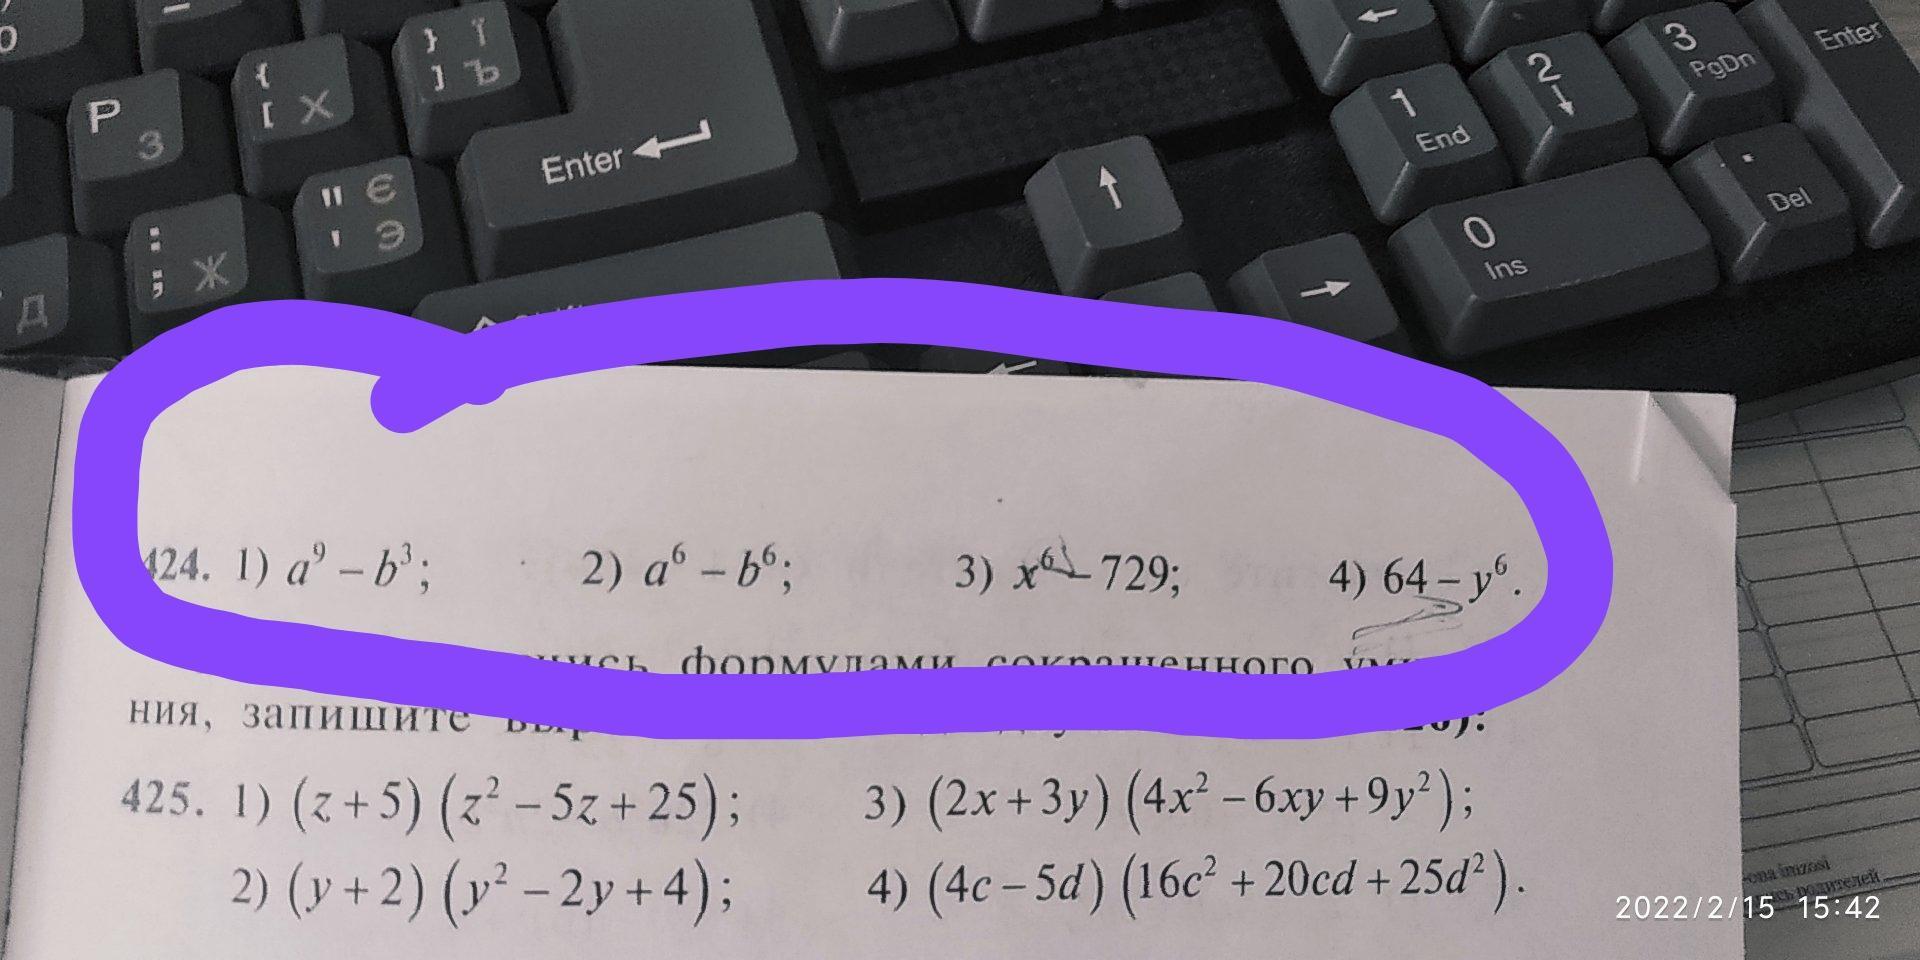 0
P З
{ [ Х
} ] Ї Ъ
Enter
" ' Є Э
: ; Ж
Д
1 End
2
3 PgDn
Enter
0 Ins
. Del
424. 1) a⁹ – b³; 2) a⁶ – b⁶; 3) x⁶ – 729; 4) 64 – y⁶.
формулами сокращенного
ния, запишите
425. 1) (z + 5) (z² – 5z + 25); 3) (2x + 3y) (4x² – 6xy + 9y²);
2) (y + 2) (y² – 2y + 4); 4) (4c – 5d) (16c² + 20cd + 25d²).
imzosi
родителей
2022/2/15 15:42